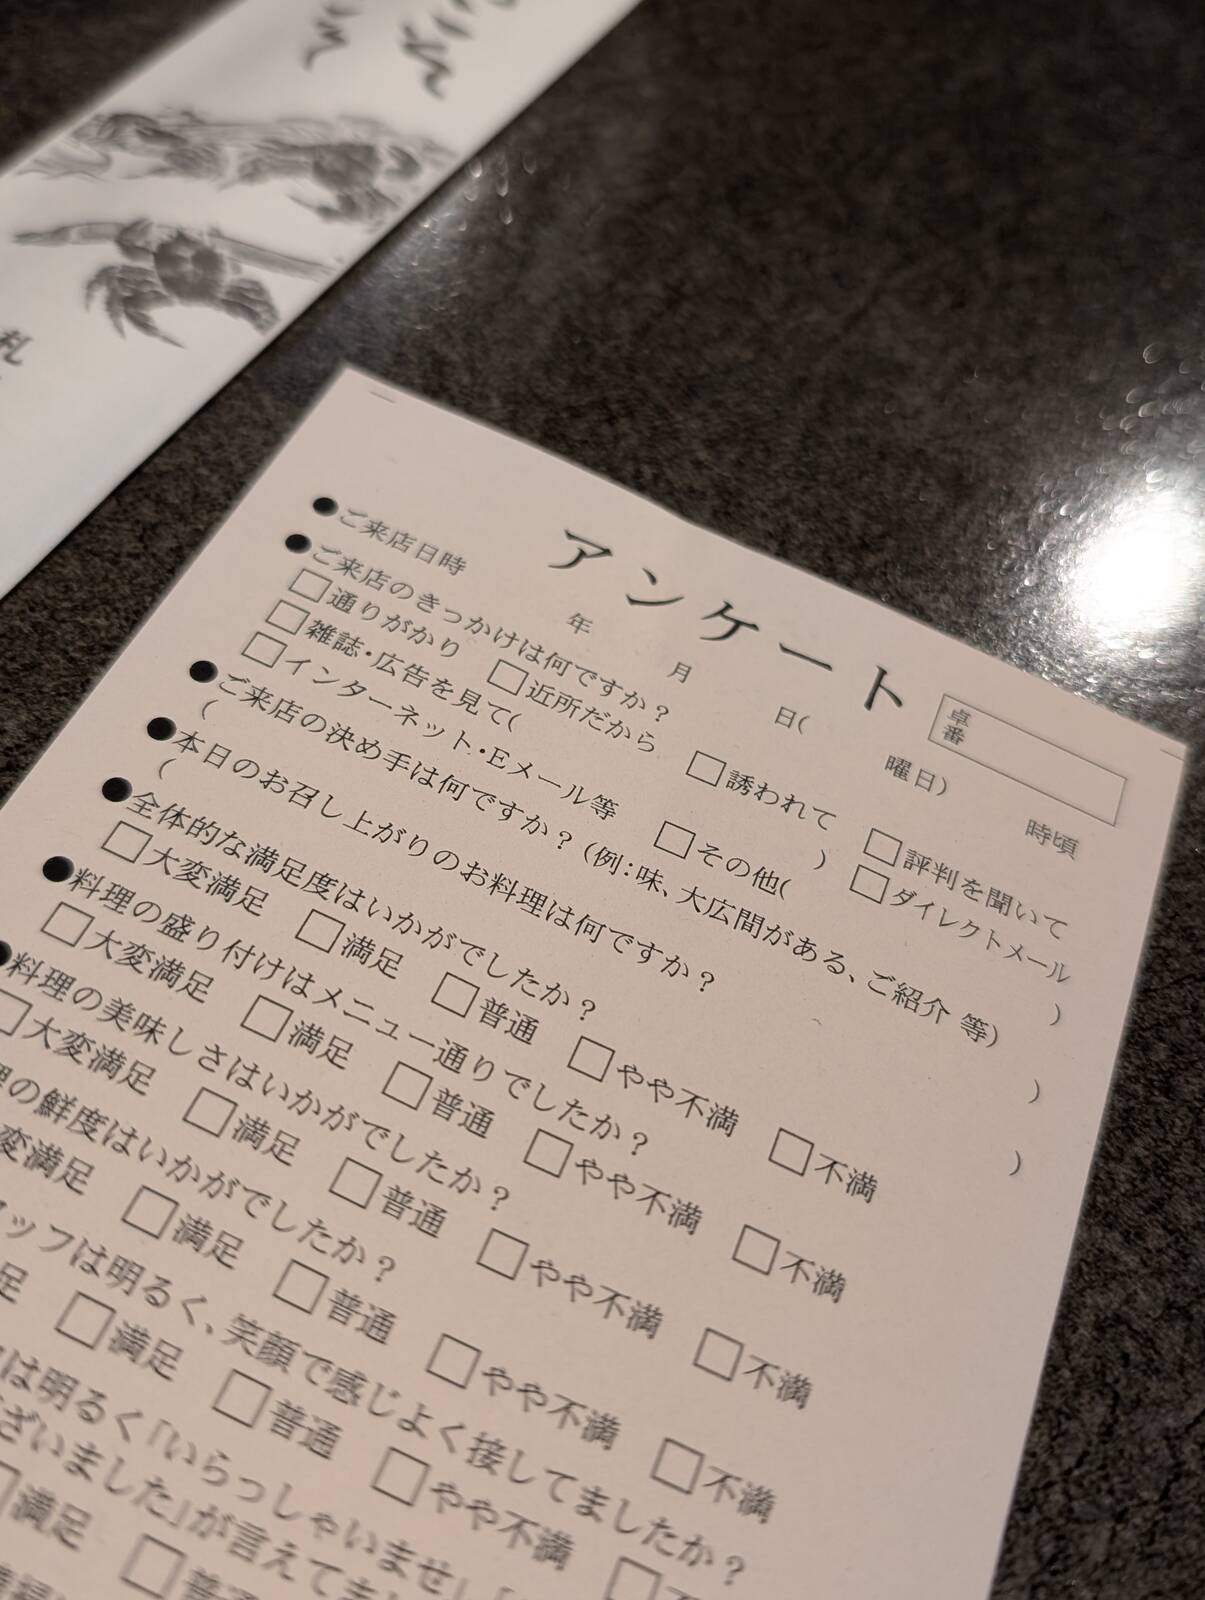 札
アンケート
卓番
●ご来店日時 年 月 日( 曜日) 時頃
●ご来店のきっかけは何ですか?
□通りがかり □近所だから □誘われて □評判を聞いて
□雑誌・広告を見て( ) □ダイレクトメール
□インターネット・Eメール等 □その他( )
●ご来店の決め手は何ですか?(例:味、大広間がある、ご紹介 等)
( )
●本日のお召し上がりのお料理は何ですか?
( )
●全体的な満足度はいかがでしたか?
□大変満足 □満足 □普通 □やや不満 □不満
●料理の盛り付けはメニュー通りでしたか?
□大変満足 □満足 □普通 □やや不満 □不満
●料理の美味しさはいかがでしたか?
□大変満足 □満足 □普通 □やや不満 □不満
理の鮮度はいかがでしたか?
変満足 □満足 □普通 □やや不満 □不満
タッフは明るく、笑顔で感じよく接してましたか?
足 □満足 □普通 □やや不満 □不満
は明るく「いらっしゃいませ」
ございました」が言えてまし
満足 □普通